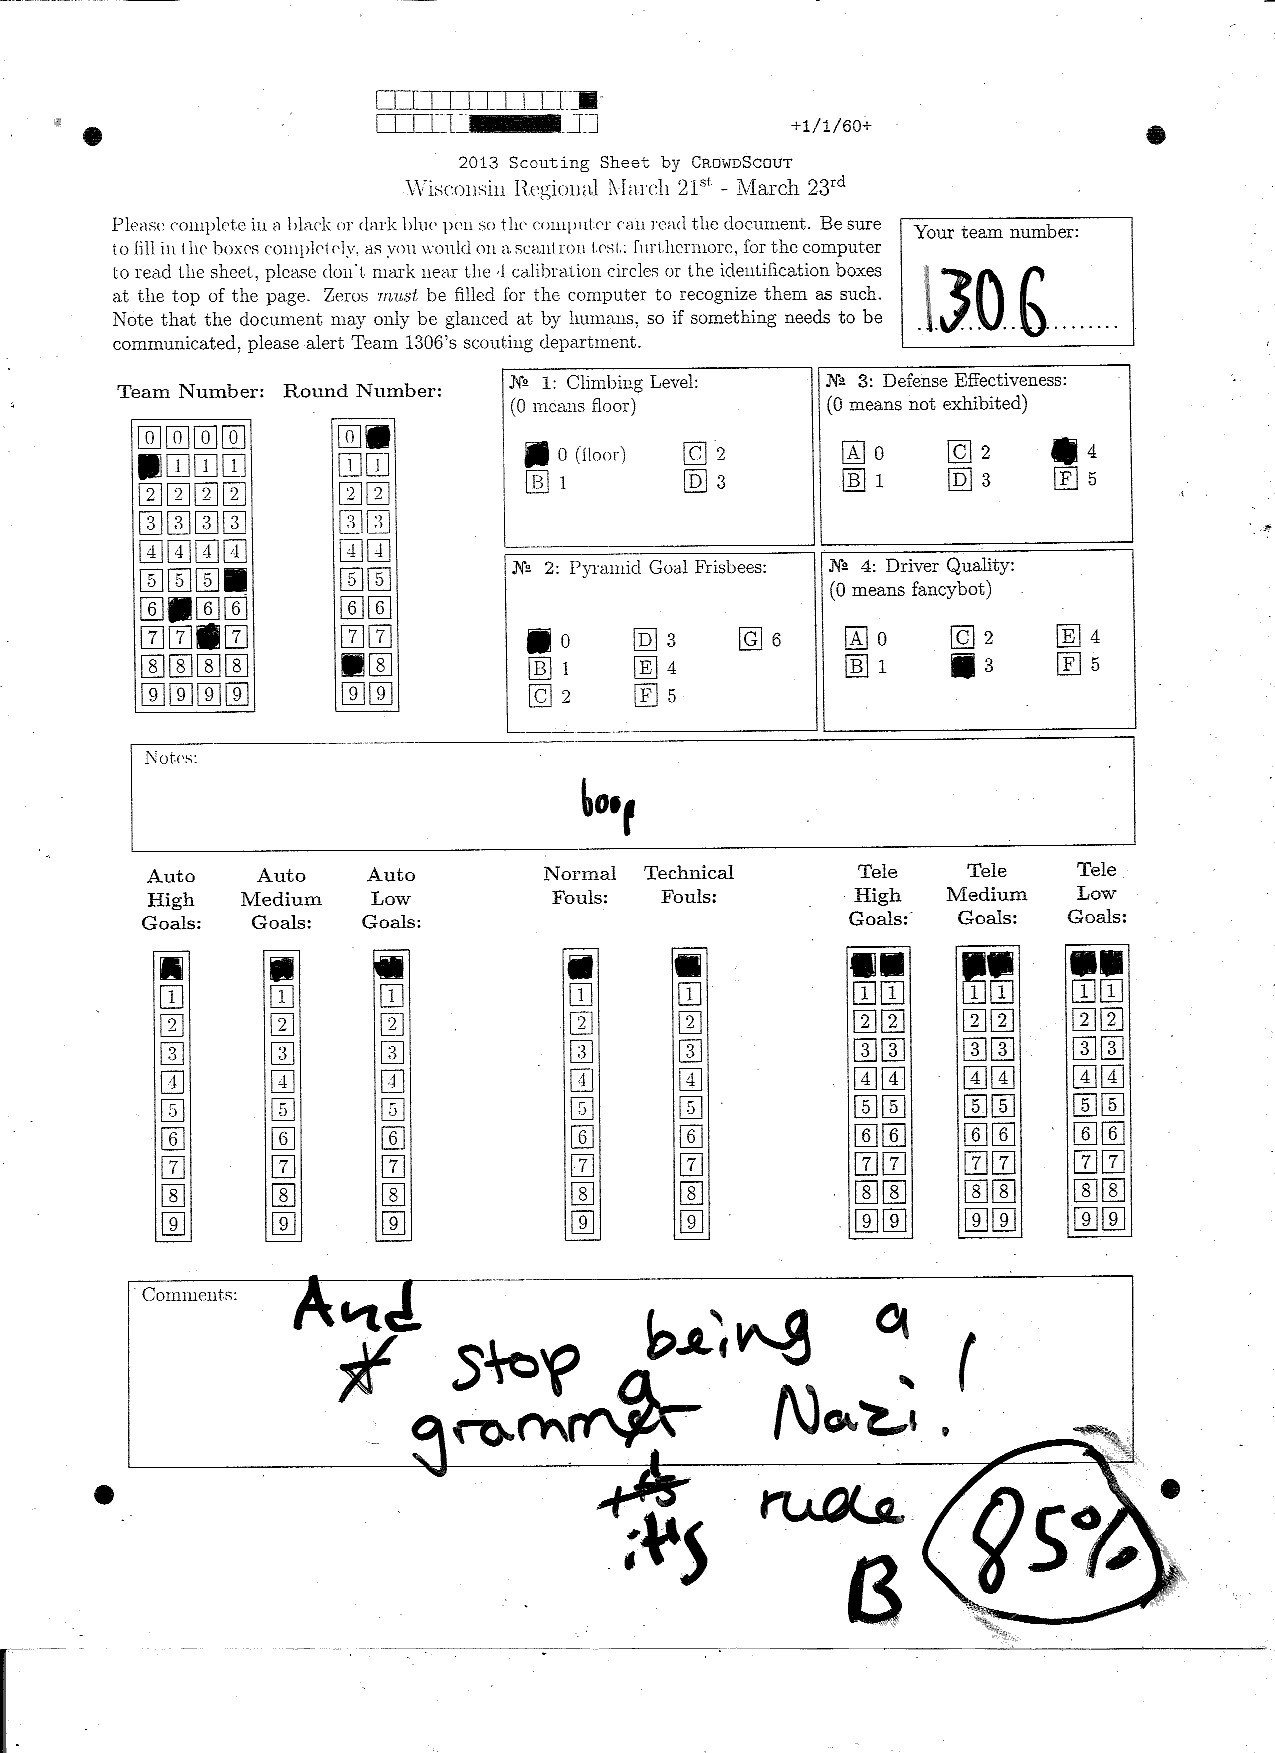 +1/1/60+
2013 Scouting Sheet by CROWDSCOUT
Wisconsin Regional March 21st - March 23rd
Please complete in a black or dark blue pen so the computer can read the document. Be sure
to fill in the boxes completely, as you would on a scantron test; furthermore, for the computer
to read the sheet, please don't mark near the 4 calibration circles or the identification boxes
at the top of the page. Zeros must be filled for the computer to recognize them as such.
Note that the document may only be glanced at by humans, so if something needs to be
communicated, please alert Team 1306's scouting department.
Your team number:
1306
Team Number: Round Number:
0 0 0 0 0
1 1 1 1 1
2 2 2 2 2 2
3 3 3 3 3 3
4 4 4 4 4 4
5 5 5 5 5
6 6 6 6 6
7 7 7 7 7
8 8 8 8 8
9 9 9 9 9 9
№ 1: Climbing Level:
(0 means floor)
0 (floor) C 2
B 1 D 3
№ 3: Defense Effectiveness:
(0 means not exhibited)
A 0 C 2 4
B 1 D 3 F 5
№ 2: Pyramid Goal Frisbees:
0 D 3 G 6
B 1 E 4
C 2 F 5
№ 4: Driver Quality:
(0 means fancybot)
A 0 C 2 E 4
B 1 3 F 5
Notes:
boop
Auto High Goals:
Auto Medium Goals:
Auto Low Goals:
Normal Fouls:
Technical Fouls:
Tele High Goals:
Tele Medium Goals:
Tele Low Goals:
1 1 1 1 1 1 1 1 1 1 1
2 2 2 2 2 2 2 2 2 2 2
3 3 3 3 3 3 3 3 3 3 3
4 4 4 4 4 4 4 4 4 4 4
5 5 5 5 5 5 5 5 5 5 5
6 6 6 6 6 6 6 6 6 6 6
7 7 7 7 7 7 7 7 7 7 7
8 8 8 8 8 8 8 8 8 8 8
9 9 9 9 9 9 9 9 9 9 9
Comments:
And
* stop being a
grammar Nazi!
it's rude
B 85%